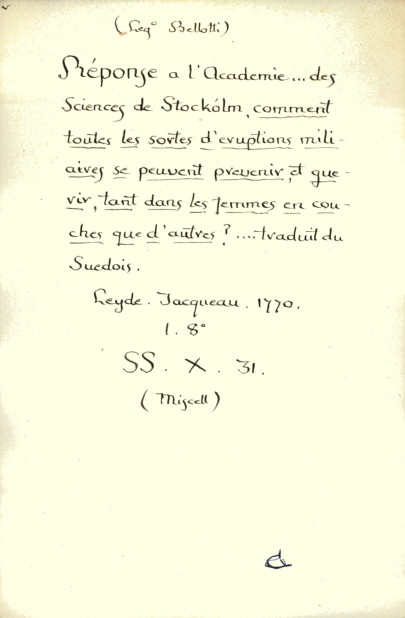 (Leg° Bellotti)
Réponse a l'Academie...des
Sciences de Stockólm, comment
toutes les sortes d'eruptions mili-
aires se peuvent prevenir, et gue-
rir, tant dans les femmes en cou-
ches que d'autres? ....traduit du
Suedois.
Leyde. Jacqueau. 1770.
1. 8°
SS. X. 31.
(Miscell)